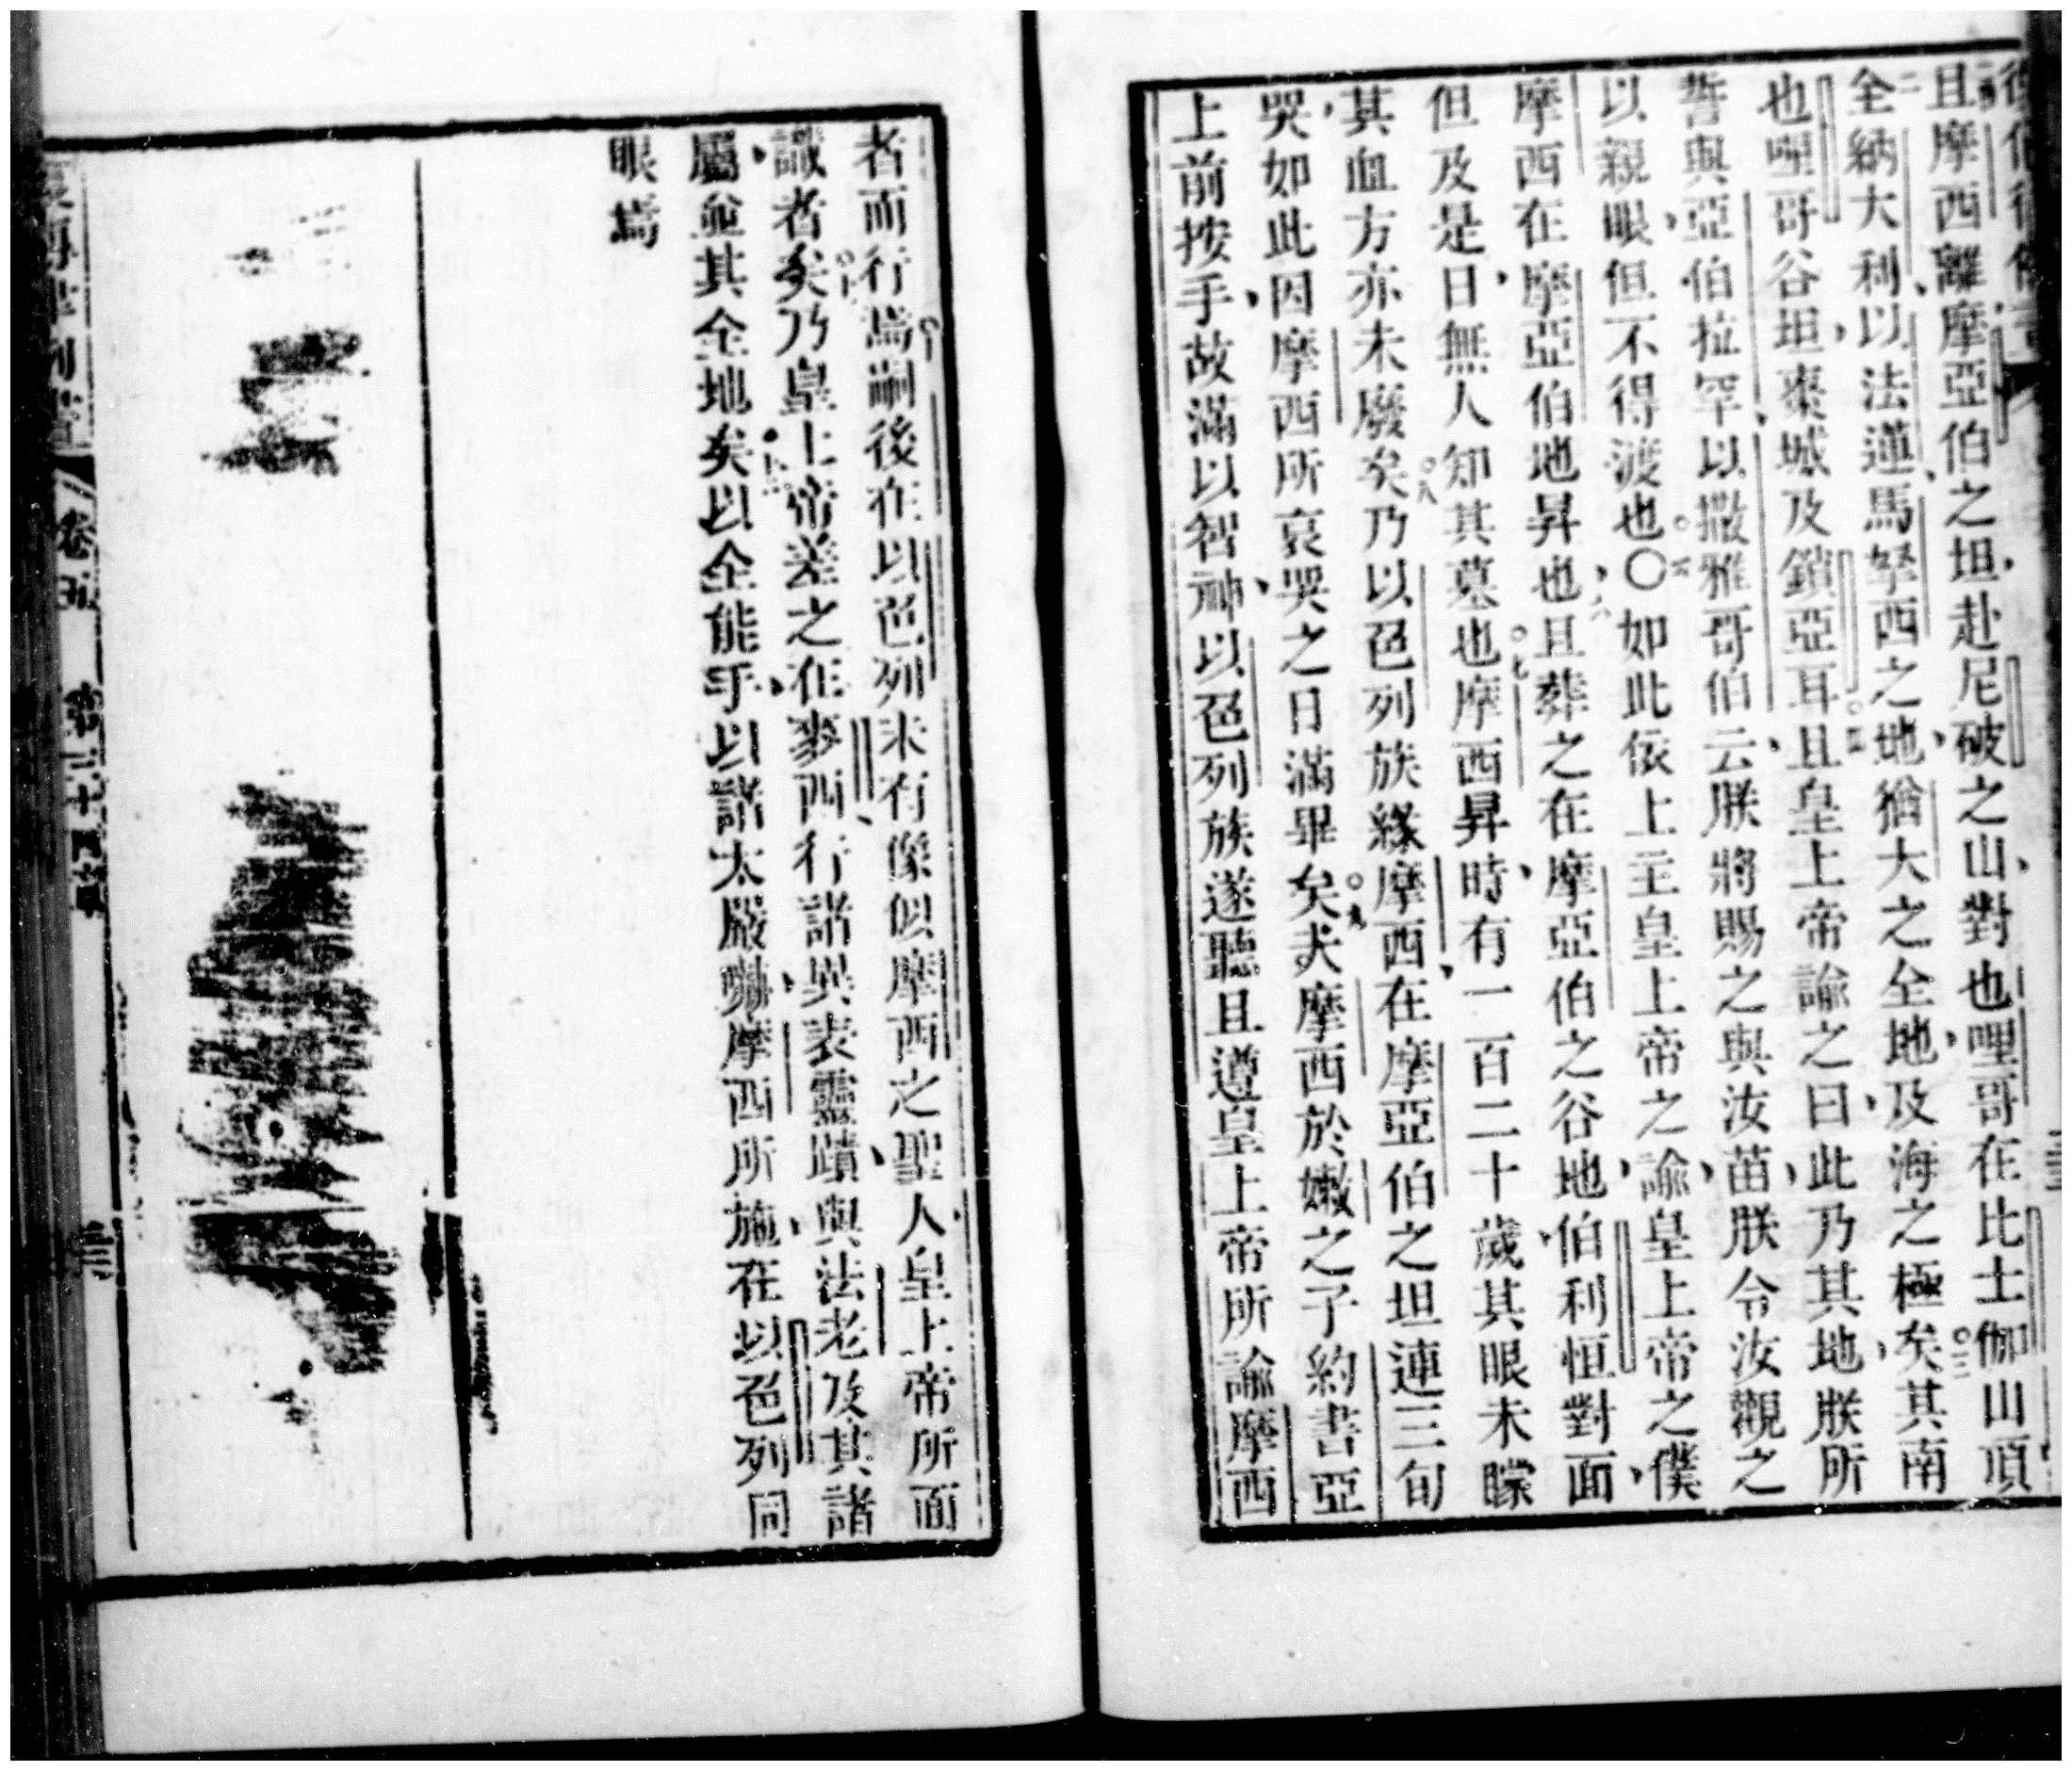 且摩西離摩亞伯之坦赴尼破之山對也哩哥在比士伽山頂
全納大利以法蓮馬拏西之地猶大之全地及海之極矣其南
也哩哥谷坦棗城及鎖亞耳且皇上帝諭之曰此乃其地朕所
誓與亞伯拉罕以撒雅哥伯云朕將賜之與汝苗朕令汝觀之
以親眼但不得渡也○如此依上主皇上帝之諭皇上帝之僕
摩西在摩亞伯地昇也且葬之在摩亞伯之谷地伯利恒對面
但及是日無人知其墓也摩西昇時有一百二十歲其眼未矇
其血方亦未廢矣乃以色列族緣摩西在摩亞伯之坦連三旬
哭如此因摩西所哀哭之日滿畢矣夫摩西於嫩之子約書亞
上前按手故滿以智神以色列族遂聽且遵皇上帝所諭摩西
者而行焉嗣後在以色列未有像似摩西之聖人皇上帝所面
識者矣乃皇上帝差之在麥西行諸異表靈蹟與法老及其諸
屬並其全地矣以全能手以諸太嚴嚇摩西所施在以色列同
眼焉
卷五 第三十四章